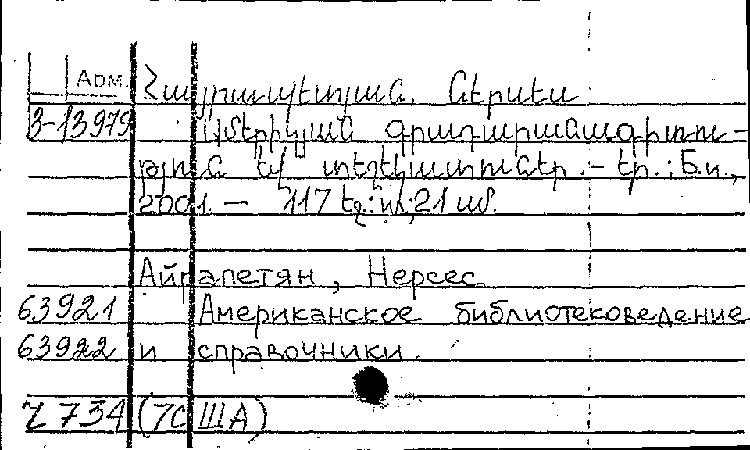 Арм Հայրապետյան, Ներսես
3-13979 Ամերիկյան գրադարանագիտու-
թյուն եվ տեղեկատուներ.- Եր.: Б.и.,
2001. — 117 էջ: ил; 21 սմ.
Айрапетян, Нерсес
63921 Американское библиотековедение
63922 и справочники.
Ч 734 (7США)